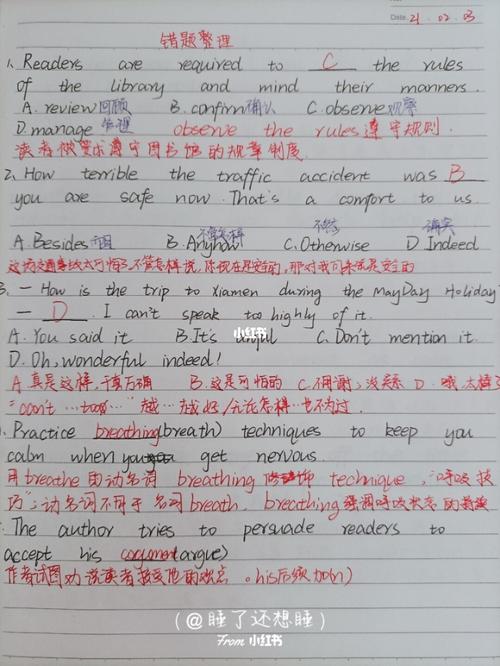 Date. 21 . 02 . 03
错题整理
1. Readers are required to C the rules
of the library and mind their manners.
A. review 回顾 B. confirm 确认 C. observe 观察
D. manage 管理 observe the rules 遵守规则.
读者被要求遵守图书馆的规章制度.
2. How terrible the traffic accident was B
you are safe now. That's a comfort to us.
不管怎样 确实
A. Besides B. Anyhow C. Otherwise D. Indeed
这场交通事故太可怕了,不管怎样说,你现在是安全的,那对我们来说是安全的
3. — How is the trip to Xiamen during the MayDay Holiday
— D . I can't speak too highly of it.
小红书
A. You said it B. It's awful C. Don't mention it.
D. Oh, wonderful indeed!
A 真是这样,千真万确 B. 这是可怕的 C 不用谢,没关系 D. 哦,太棒了
"can't … too …" 越…越好/无论怎样…也不为过.
. Practice breathing (breath) techniques to keep you
calm when you get nervous.
用breathe的动名词 breathing 修饰 technique, "呼吸技
巧";动名词不用于名词breath. breathing 强调呼吸状态的
The author tries to persuade readers to
accept his argument (argue)
作者试图劝说读者接受他的观点. his后须加(n)
(@睡了还想睡)
From 小红书